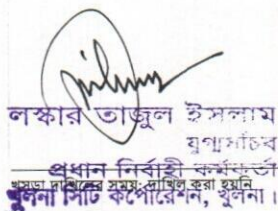 লস্কার তাজুল ইসলাম
যুগ্মসচিব
প্রধান নির্বাহী কর্মকর্তা
খসড়া দাখিলের সময়: দাখিল করা হয়নি
খুলনা সিটি কর্পোরেশন, খুলনা।